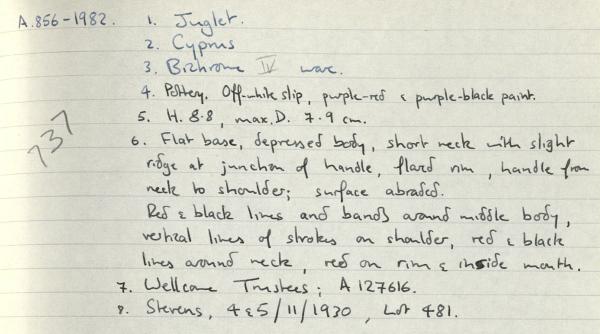 A.856-1982. 1. Juglet.
2. Cyprus
3. Bichrome IV ware.
4. Pottery. Off-white slip, purple-red & purple-black paint.
5. H. 8.8, max. D. 7.9 cm.
737
6. Flat base, depressed body, short neck with slight
ridge at junction of handle, flared rim, handle from
neck to shoulder; surface abraded.
Red & black lines and bands around middle body,
vertical lines of strokes on shoulder, red & black
lines around neck, red on rim & inside mouth.
7. Wellcome Trustees; A 127616.
8. Stevens, 4 & 5/11/1930, Lot 481.